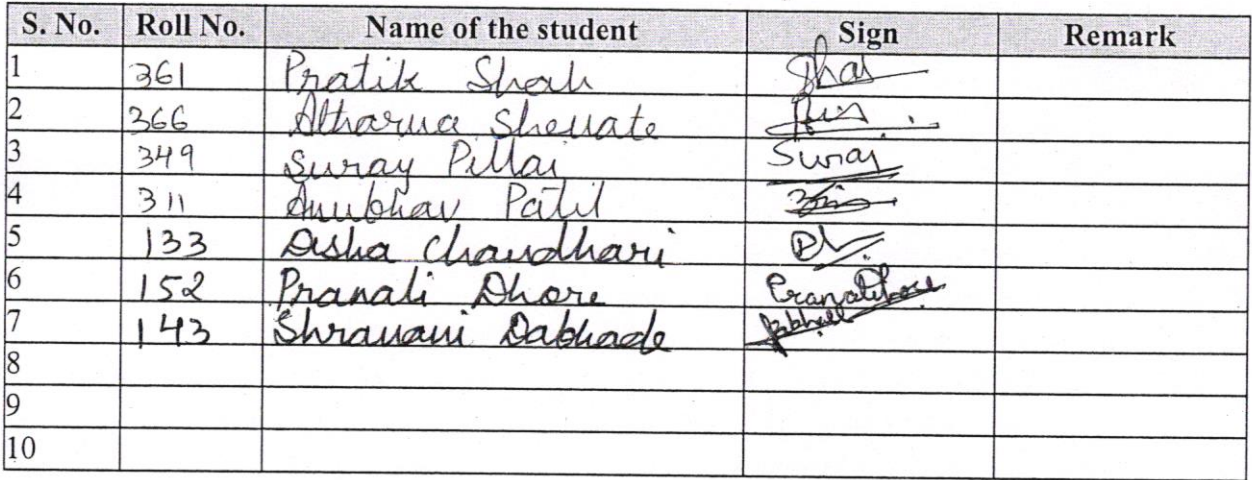 S. No. Roll No. Name of the student Sign Remark
1 361 Pratik Shah Shah
2 366 Atharva Shevate
3 349 Suraj Pillai Suraj
4 311 Anubhav Patil
5 133 Disha Chaudhari
6 152 Pranali Dhore PranaliDhore
7 143 Shravani Dabhade
8
9
10